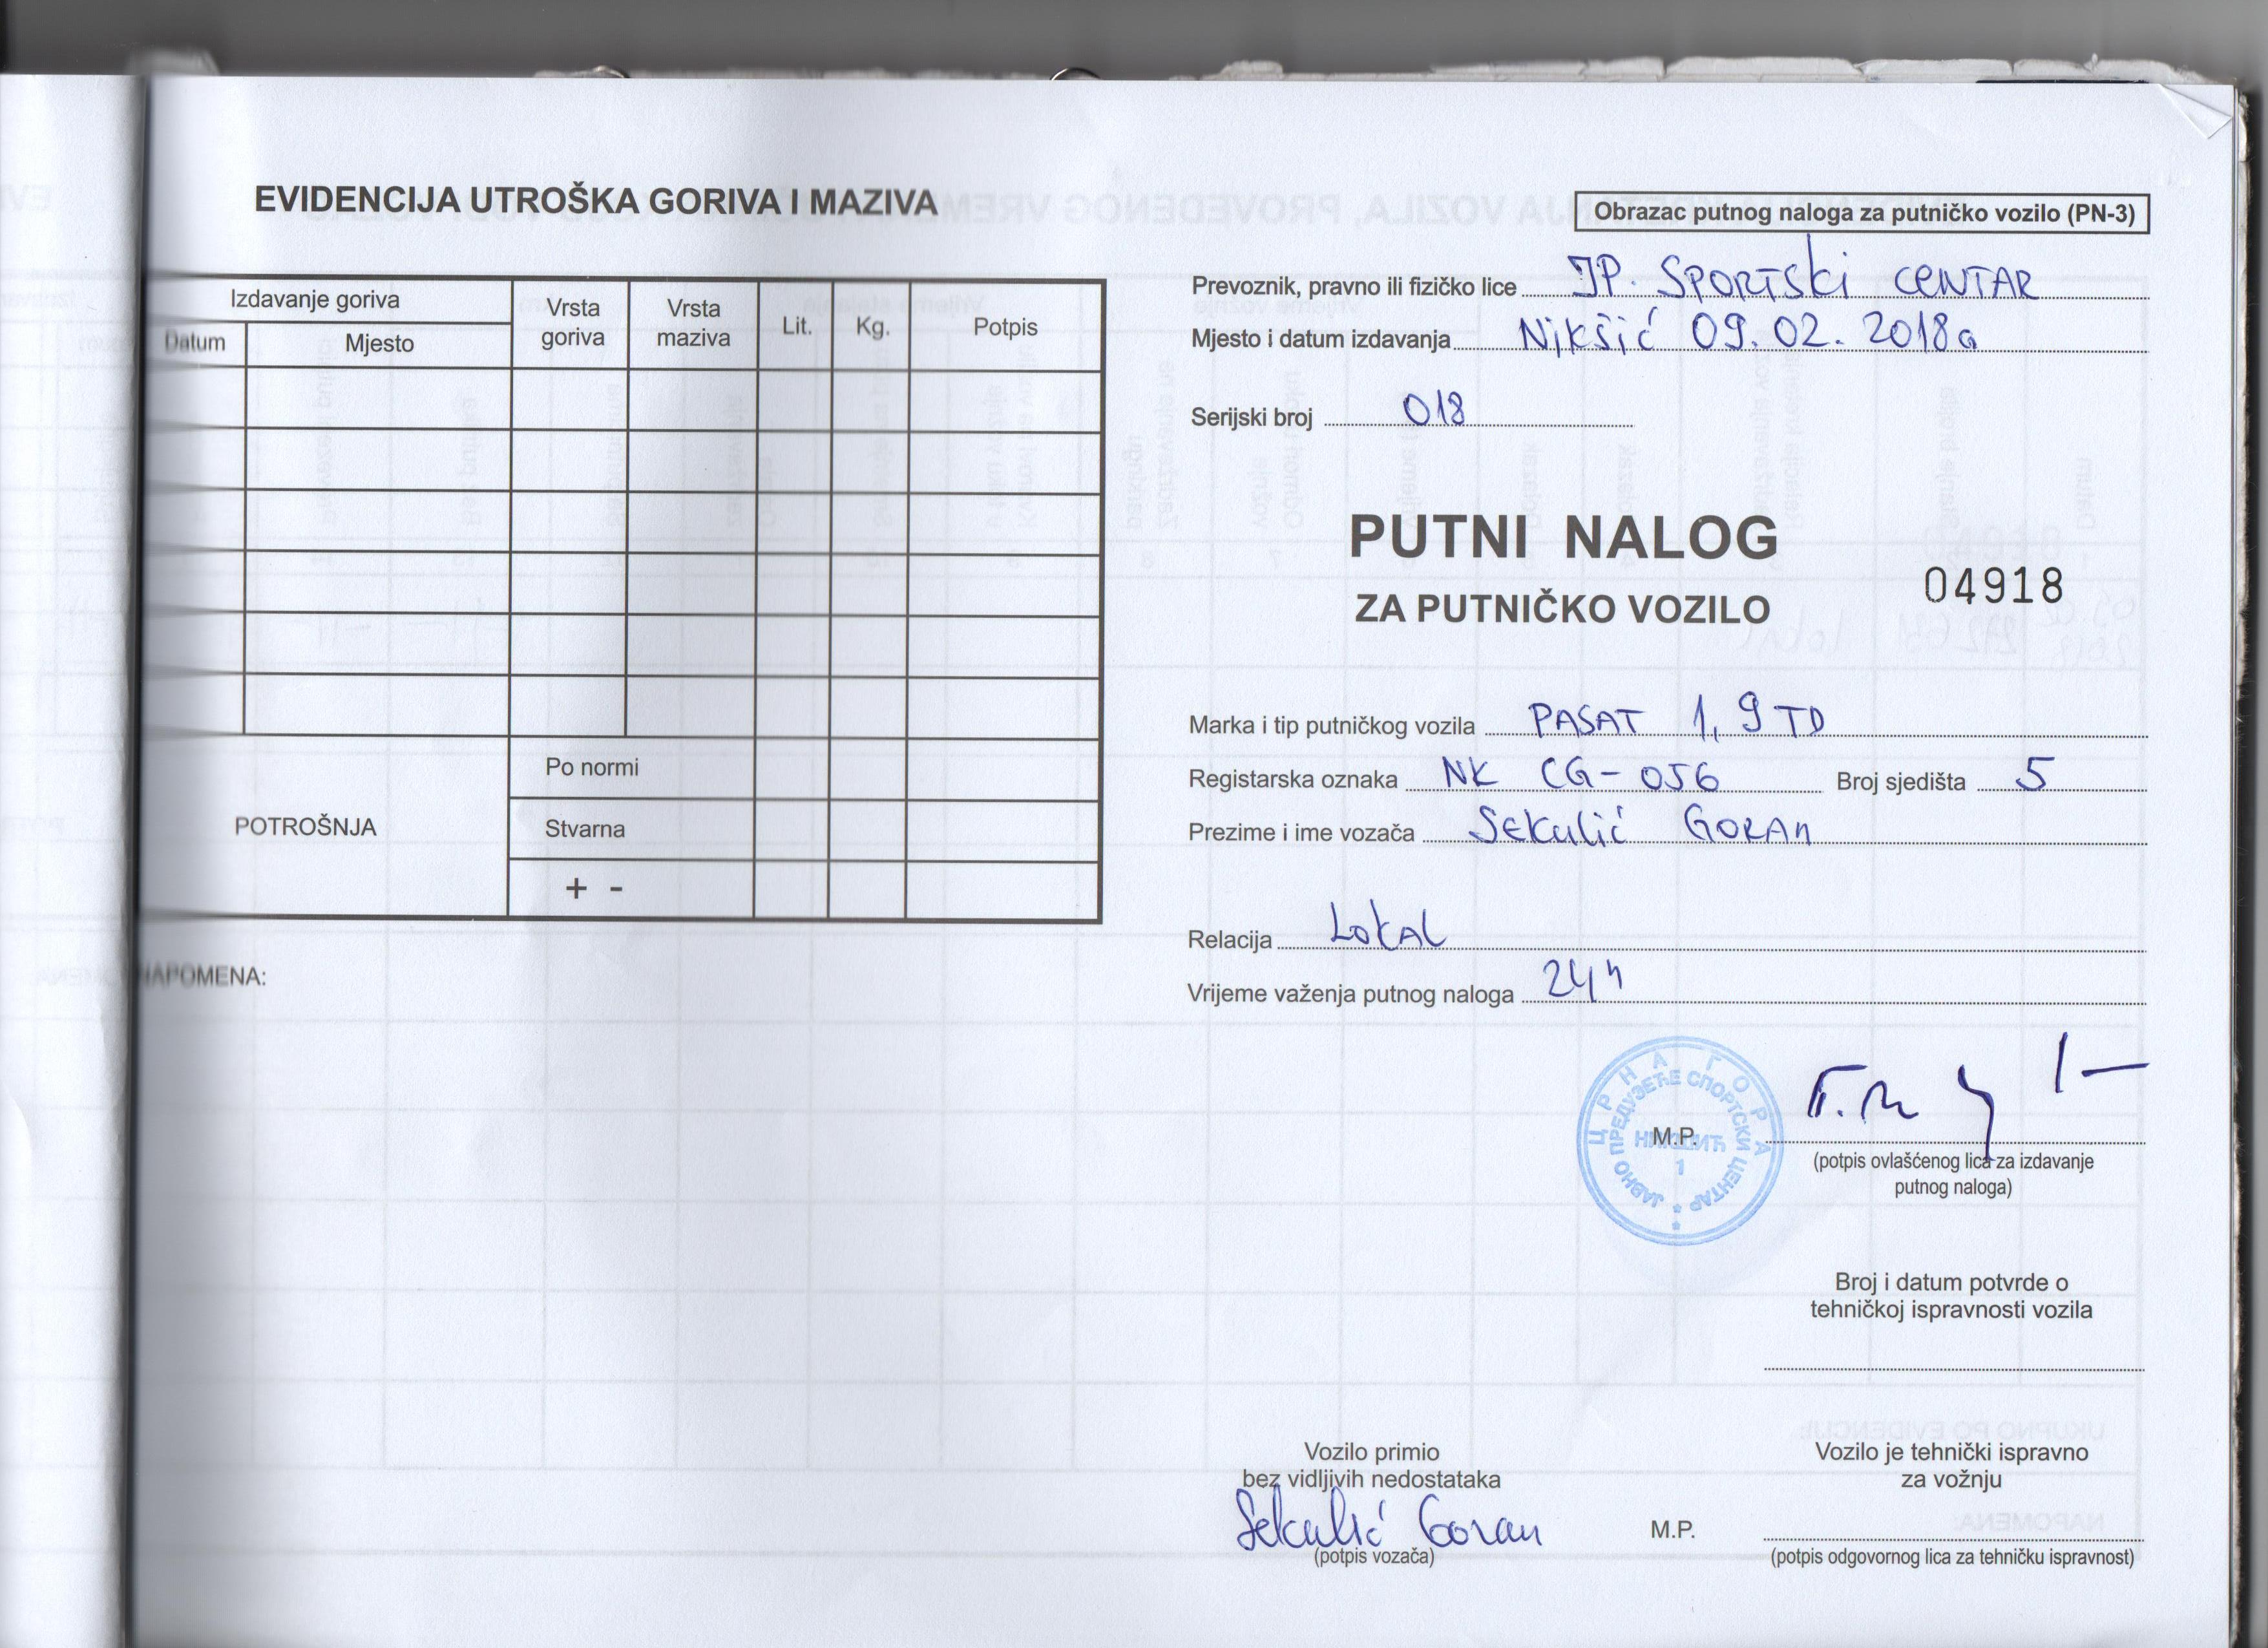 EVIDENCIJA UTROŠKA GORIVA I MAZIVA
Izdavanje goriva
Datum
Mjesto
Vrsta goriva
Vrsta maziva
Lit.
Kg.
Potpis
POTROŠNJA
Po normi
Stvarna
+ -
NAPOMENA:
Obrazac putnog naloga za putničko vozilo (PN-3)
Prevoznik, pravno ili fizičko lice JP. SPORTSKI CENTAR
Mjesto i datum izdavanja Nikšić 09.02.2018g
Serijski broj 018
PUTNI NALOG
ZA PUTNIČKO VOZILO
04918
Marka i tip putničkog vozila PASAT 1,9 TD
Registarska oznaka NK CG-056 Broj sjedišta 5
Prezime i ime vozača Sekulić GORAN
Relacija LOKAL
Vrijeme važenja putnog naloga 24h
ЦРНА ГОРА
ЈАВНО ПРЕДУЗЕЋЕ СПОРТСКИ ЦЕНТАР
НИКШИЋ
1
M.P.
(potpis ovlašćenog lica za izdavanje
putnog naloga)
Broj i datum potvrde o
tehničkoj ispravnosti vozila
Vozilo primio
bez vidljivih nedostataka
Sekulić Goran
(potpis vozača)
Vozilo je tehnički ispravno
za vožnju
M.P.
(potpis odgovornog lica za tehničku ispravnost)